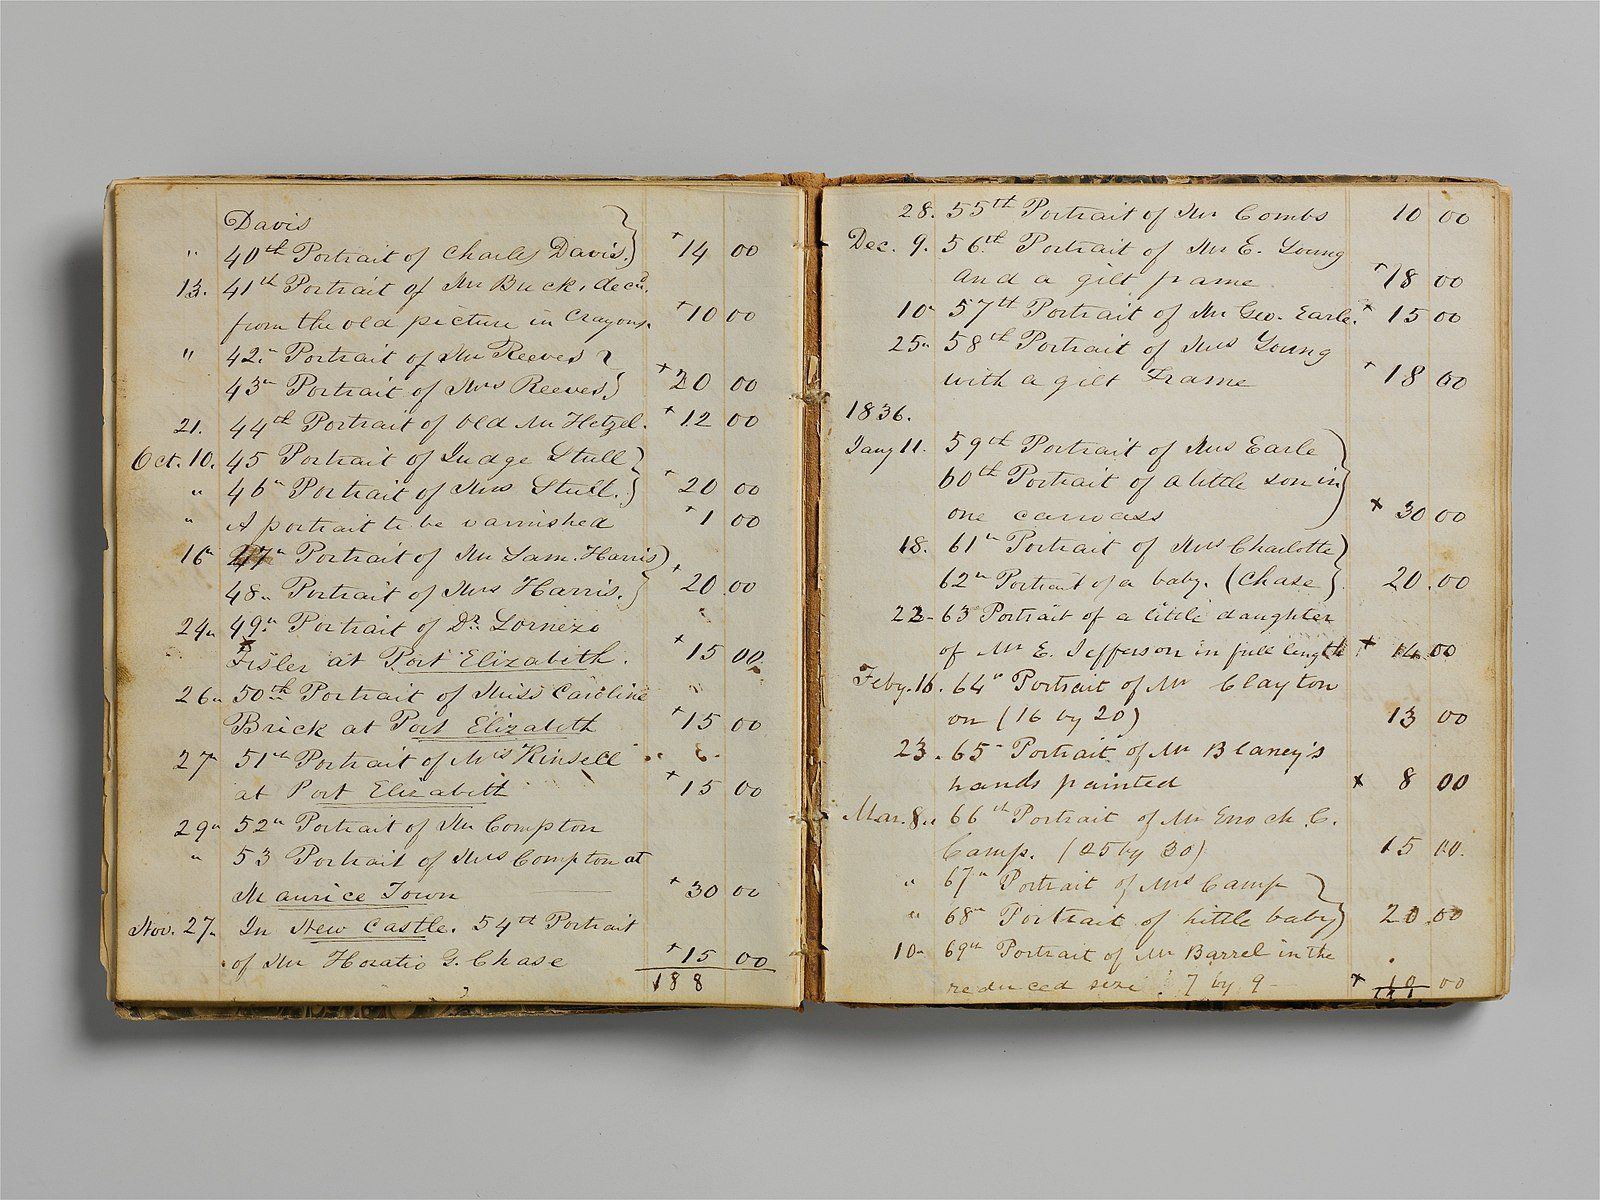 Davis
" 40th Portrait of Charles Davis. +14 00
13. 41th Portrait of Mr Buck, decd.
from the old picture in Crayons. +10 00
" 42" Portrait of Mr Reeves
43" Portrait of Mrs Reeves +20 00
21. 44th Portrait of old Mr Hetzel. +12 00
Oct. 10. 45 Portrait of Judge Stull
" 46" Portrait of Mrs Stull. +20 00
" A portrait to be varnished +1 00
16" 47" Portrait of Mr Sam. Harris
48" Portrait of Mrs Harris. +20 00
24" 49" Portrait of Dr Lornezo
Fisler at Port Elizabeth. +15 00
26" 50th Portrait of Miss Caroline
Brick at Port Elizabeth +15 00
27 51st Portrait of Mrs Kinsell
at Port Elizabeth +15 00
29" 52" Portrait of Mr Compton
" 53 Portrait of Mrs Compton at
Maurice Town +30 00
Nov. 27" In New Castle. 54th Portrait
of Mr Horatio G. Chase +15 00
188
28. 55th Portrait of Mr Combs 10 00
Dec. 9. 56th Portrait of Mr E. Young
and a gilt frame +18 00
10" 57th Portrait of Mr Geo. Earle. + 15 00
25" 58th Portrait of Mrs Young
with a gilt Frame +18 00
1836.
Jany 11. 59th Portrait of Mrs Earle
60th Portrait of a little son in
one canvass + 30 00
18. 61" Portrait of Mrs Charlotte
62" Portrait of a baby. (Chase 20.00
22- 63 Portrait of a little daughter
of Mr E. Jefferson in full length + 14 00
Feby. 16. 64" Portrait of Mr Clayton
on (16 by 20) 13 00
23. 65" Portrait of Mr Blaney's
hands painted + 8 00
Mar. 8. 66th Portrait of Mr Enoch C.
Camp. (25 by 30) 15 00.
" 67" Portrait of Mrs Camp
" 68" Portrait of little baby 20 00
10" 69th Portrait of Mr Barrel in the
reduced size 7 by 9 + 10 00